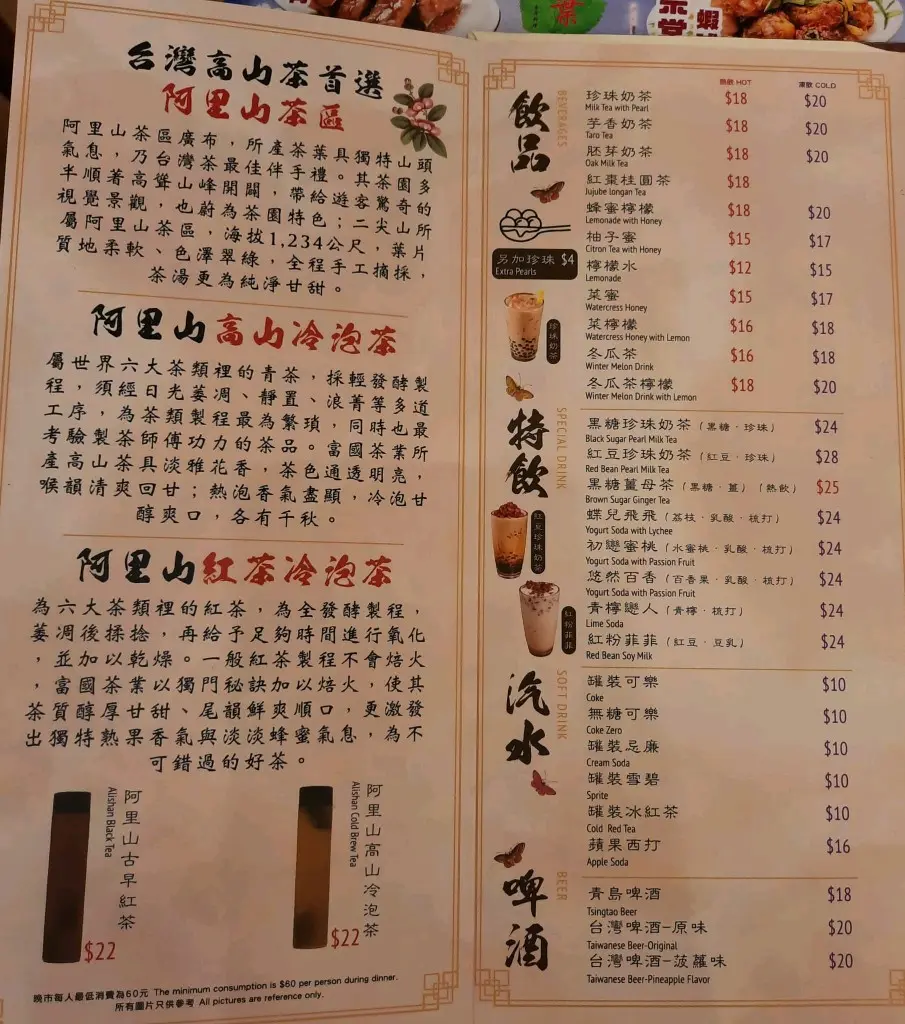 台灣高山茶首選
阿里山茶區
阿里山茶區廣布，所產茶葉具獨特山頭
氣息，乃台灣茶最佳伴手禮。其茶園多
半順著高聳山峰開闢，帶給遊客驚奇的
視覺景觀，也蔚為茶園特色；二尖山所
屬阿里山茶區，海拔1,234公尺，葉片
質地柔軟、色澤翠綠，全程手工摘採，
茶湯更為純淨甘甜。
阿里山高山冷泡茶
屬世界六大茶類裡的青茶，採輕發酵製
程，須經日光萎凋、靜置、浪菁等多道
工序，為茶類製程最為繁瑣，同時也最
考驗製茶師傅功力的茶品。富國茶業所
產高山茶具淡雅花香，茶色通透明亮，
喉韻清爽回甘；熱泡香氣盡顯，冷泡甘
醇爽口，各有千秋。
阿里山紅茶冷泡茶
為六大茶類裡的紅茶，為全發酵製程，
萎凋後揉捻，再給予足夠時間進行氧化
，並加以乾燥。一般紅茶製程不會焙火
，富國茶業以獨門秘訣加以焙火，使其
茶質醇厚甘甜、尾韻鮮爽順口，更激發
出獨特熟果香氣與淡淡蜂蜜氣息，為不
可錯過的好茶。
阿里山古早紅茶
Alishan Black Tea
$22
阿里山高山冷泡茶
Alishan Cold Brew Tea
$22
晚市每人最低消費為60元 The minimum consumption is $60 per person during dinner.
所有圖片只供參考 All pictures are reference only.
飲品
BEVERAGES
熱飲 HOT 凍飲 COLD
珍珠奶茶 $18 $20
Milk Tea with Pearl
芋香奶茶 $18 $20
Taro Tea
胚芽奶茶 $18 $20
Oak Milk Tea
紅棗桂圓茶 $18
Jujube longan Tea
蜂蜜檸檬 $18 $20
Lemonade with Honey
柚子蜜 $15 $17
Citron Tea with Honey
檸檬水 $12 $15
Lemonade
菜蜜 $15 $17
Watercress Honey
菜檸檬 $16 $18
Watercress Honey with Lemon
冬瓜茶 $16 $18
Winter Melon Drink
冬瓜茶檸檬 $18 $20
Winter Melon Drink with Lemon
另加珍珠 $4
Extra Pearls
珍珠奶茶
特飲
SPECIAL DRINK
黑糖珍珠奶茶（黑糖．珍珠） $24
Black Sugar Pearl Milk Tea
紅豆珍珠奶茶（紅豆．珍珠） $28
Red Bean Pearl Milk Tea
黑糖薑母茶（黑糖．薑）（熱飲） $25
Brown Sugar Ginger Tea
蝶兒飛飛（荔枝．乳酸．梳打） $24
Yogurt Soda with Lychee
初戀蜜桃（水蜜桃．乳酸．梳打） $24
Yogurt Soda with Passion Fruit
悠然百香（百香果．乳酸．梳打） $24
Yogurt Soda with Passion Fruit
青檸戀人（青檸．梳打） $24
Lime Soda
紅粉菲菲（紅豆．豆乳） $24
Red Bean Soy Milk
紅豆珍珠奶茶
紅粉菲菲
汽水
SOFT DRINK
罐裝可樂 $10
Coke
無糖可樂 $10
Coke Zero
罐裝忌廉 $10
Cream Soda
罐裝雪碧 $10
Sprite
罐裝冰紅茶 $10
Cold Red Tea
蘋果西打 $16
Apple Soda
啤酒
BEER
青島啤酒 $18
Tsingtao Beer
台灣啤酒-原味 $20
Taiwanese Beer-Original
台灣啤酒-菠蘿味 $20
Taiwanese Beer-Pineapple Flavor